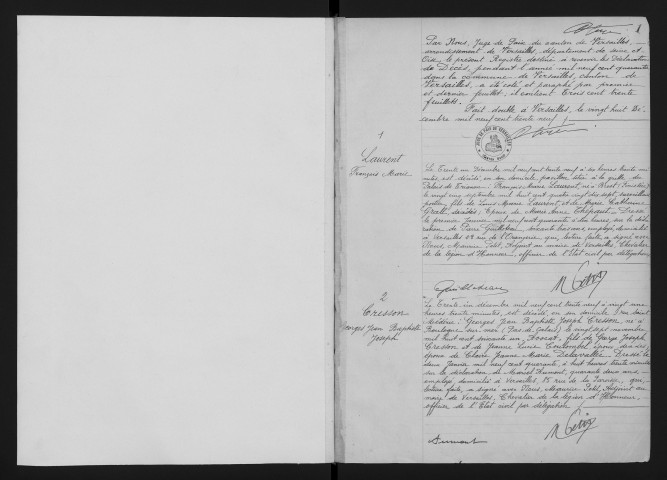 1
Par Nous, Juge de Paix du canton de Versailles,
arrondissement de Versailles, département de Seine et
Oise le présent Registre destiné à recevoir les Déclarations
de Décès, pendant l'année mil neuf cent quarante
dans la commune de Versailles, canton de
Versailles, a été coté et paraphé par premier
et dernier feuillet; il contient trois cent trente
feuillets.
Fait double, à Versailles, le vingt huit Dé-
cembre mil neuf cent trente neuf
1
Laurent
François Marie
Le Trente un Décembre mil neuf cent trente neuf à heures trente mi-
nutes, est décédé, en son domicile pavillon situé à la grille du
Palais de Trianon: François Marie Laurent, né à
le vingt cinq septembre mil huit cent quatre vingt dix sept, surveillant
fils de Louis Marie Laurent, et de Marie Catherine
décédés; Epoux de Marie Anne Dressé
le premier Janvier mil neuf cent quarante, heures, sur la décla-
ration de Pierre soixante employé, domicilié
à Versailles rue de l'Orangerie qui, lecture faite, a signé avec
Nous, Maurice Petit, Adjoint au maire de Versailles, Chevalier
de la légion d'Honneur, officier de l'Etat civil par délégation
2
Cresson
Georges Jean Baptiste
Joseph
Le Trente un décembre mil neuf cent trente neuf à vingt une
heures trente minutes, est décédé, en son domicile rue Saint
Médéric: Georges Jean Baptiste Joseph Cresson, né à
Boulogne sur mer (Pas de Calais) le vingt sept novembre
mil huit cent soixante un Avocat, fils de George Joseph
Cresson et de Jeanne Lucie époux décédés,
époux de Claire Jeanne Marie Delavallée. Dressé le
deux Janvier mil neuf cent quarante, à huit heures trente minutes
sur la déclaration de Marcel Aumont, quarante deux ans
employé domicilié à Versailles, 15 rue de la qui,
lecture faite, a signé avec Nous, Maurice Petit, Adjoint au
maire de Versailles, Chevalier de la légion d'Honneur,
officier de l'Etat civil par délégation
Aumont